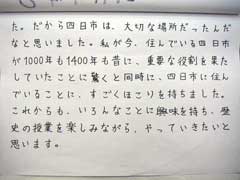 た。だから四日市は、大切な場所だったんだ
なと思いました。私が今、住んでいる四日市
が1000年も1400年も昔に、重要な役割を果た
していたことに驚くと同時に、四日市に住ん
でいることに、すごくほこりを持ちました。
これからも、いろんなことに興味を持ち、歴
史の授業を楽しみながら、やっていきたいと
思います。